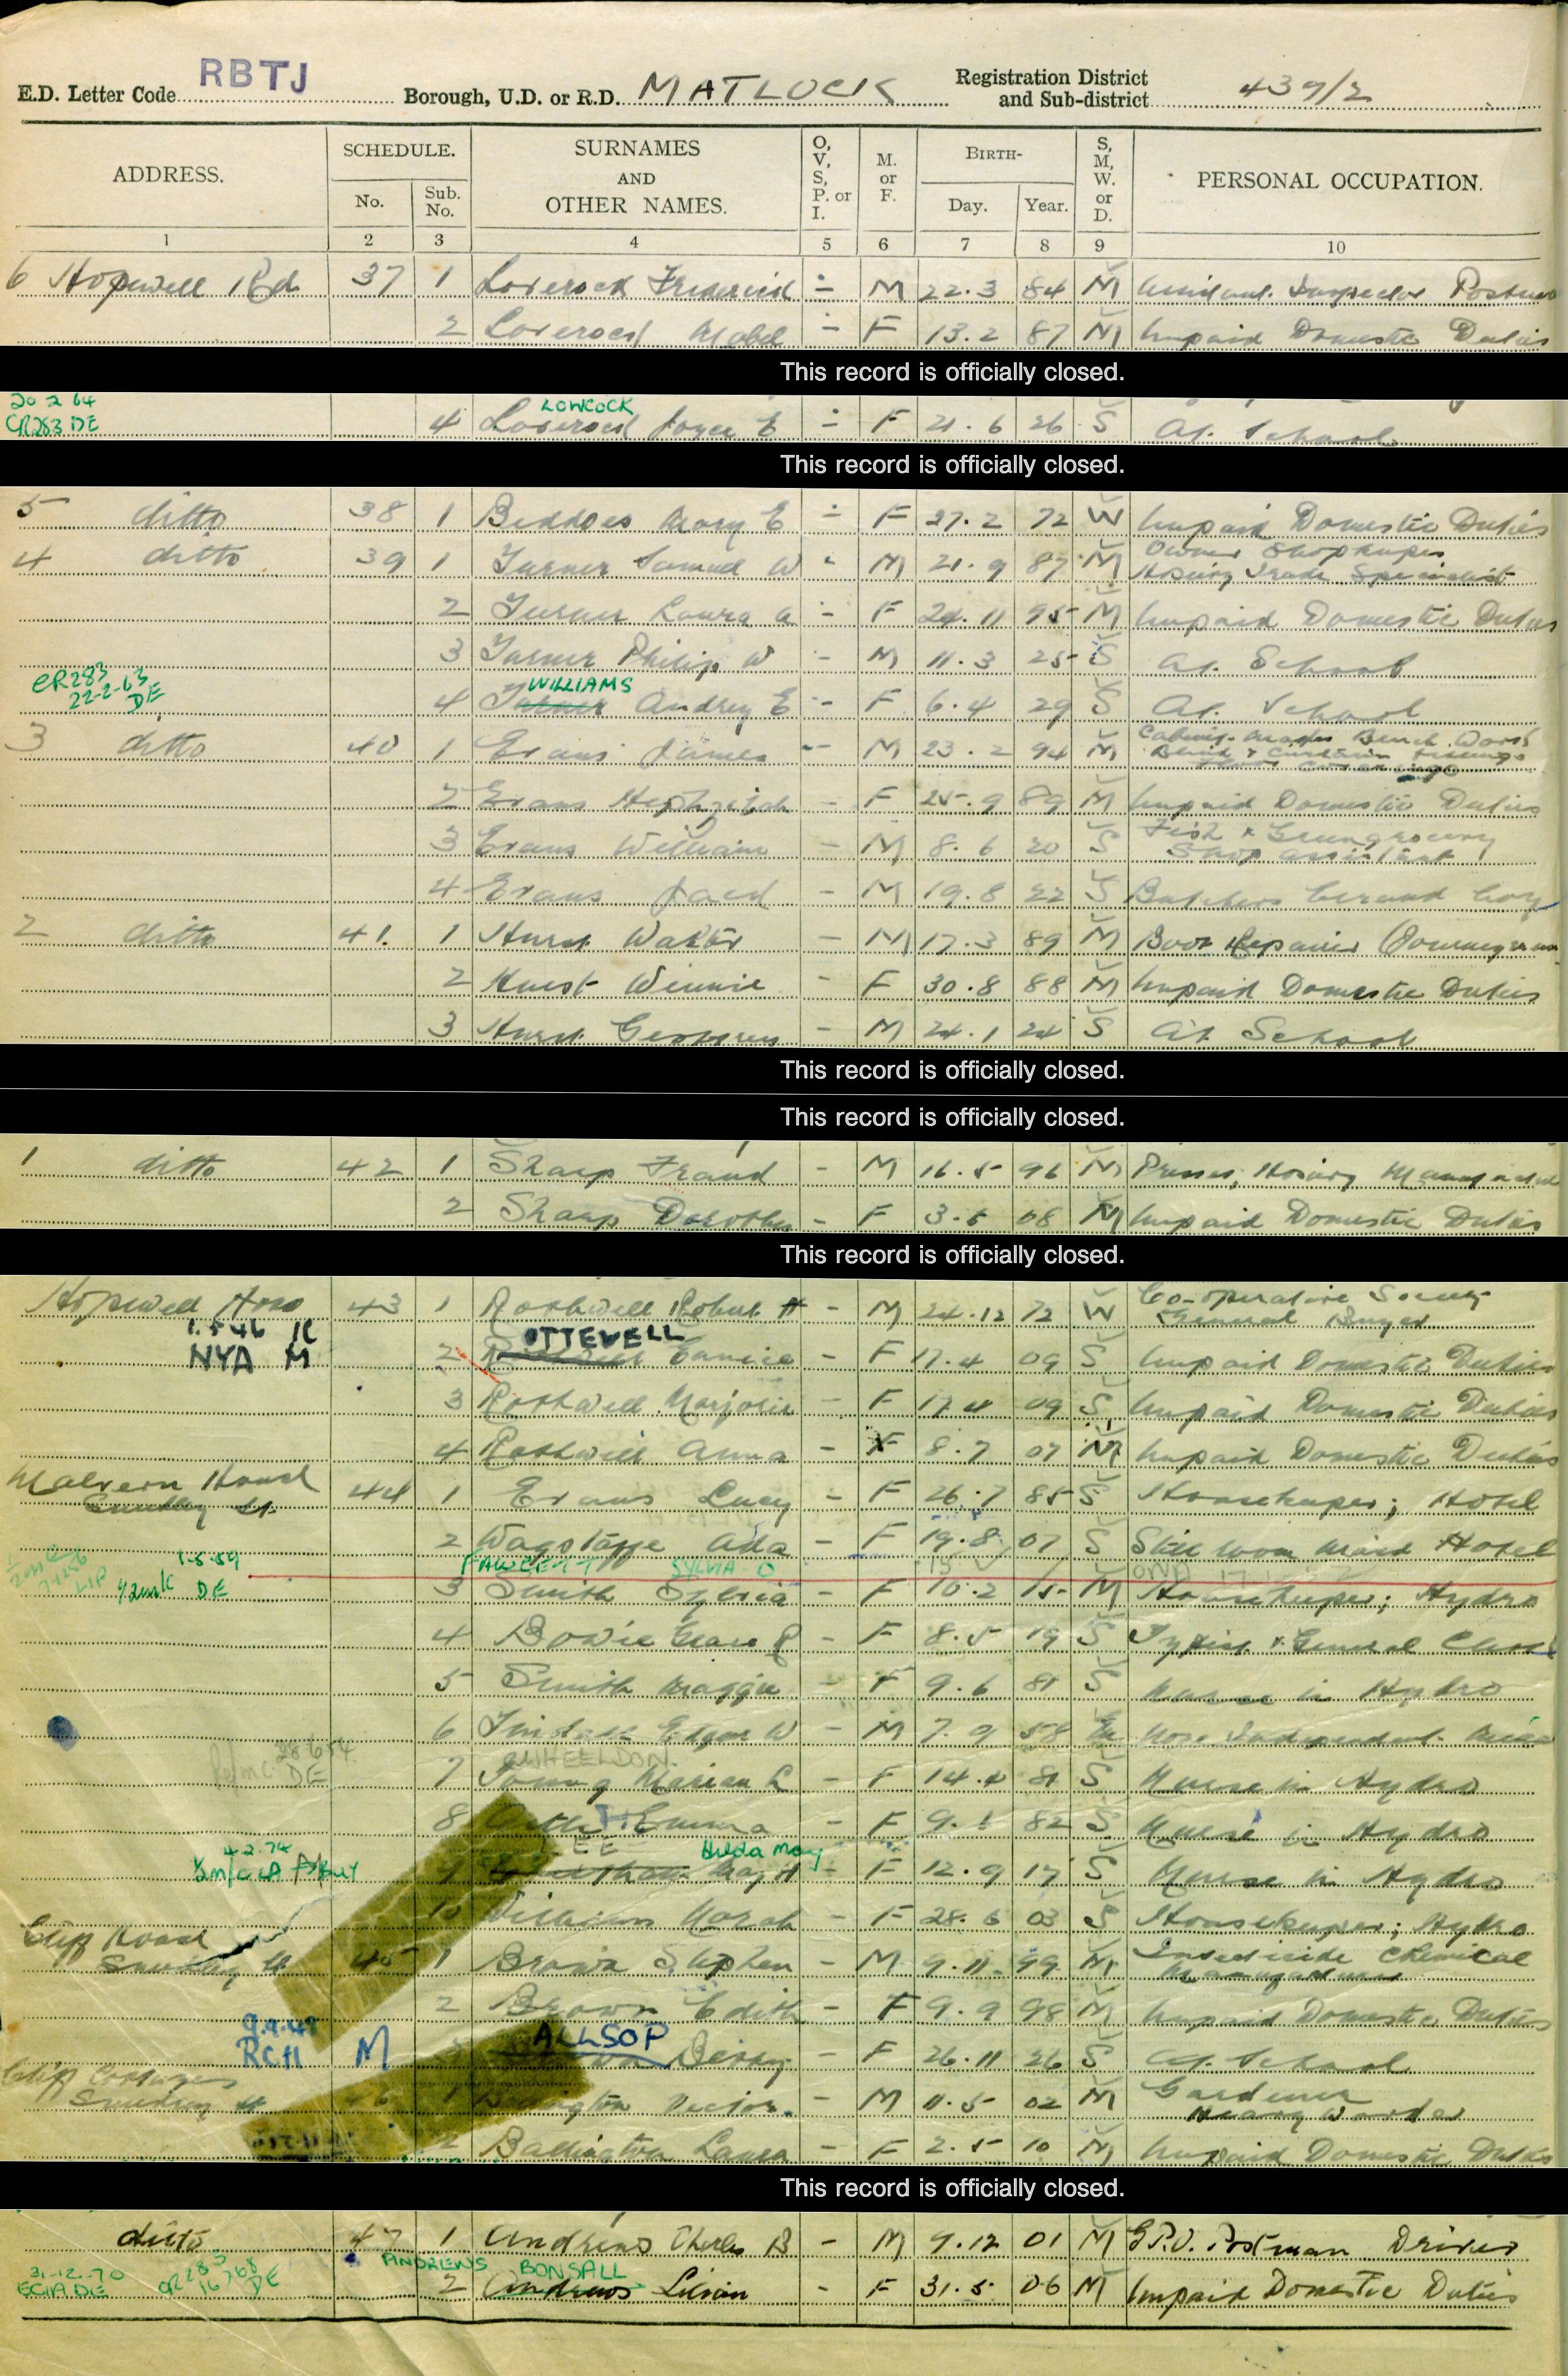 E.D. Letter Code RBTJ Borough, U.D. or R.D. MATLOCK Registration District and Sub-district 439/2
ADDRESS. SCHEDULE. No. Sub. No. SURNAMES AND OTHER NAMES. O, V, S, P. or I. M. or F. BIRTH- Day. Year. S, M, W. or D. PERSONAL OCCUPATION.
1 2 3 4 5 6 7 8 9 10
6 Hopewell Rd 37 1 Loverock Frederick - M 22.3 84 M Assistant Inspector
2 Loverock Mabel - F 13.2 87 M Unpaid Domestic Duties
This record is officially closed.
20 2 64
LOWCOCK
CR283 DE 4 Loverock Joyce E - F 21.6 26 S At School
This record is officially closed.
5 ditto 38 1 Beddoes Mary E - F 27.2 72 W Unpaid Domestic Duties
4 ditto 39 1 Turner Samuel W - M 21.9 87 M Owner Shopkeeper
Hosiery Trade Specialist
2 Turner Laura A - F 24.11 95 M Unpaid Domestic Duties
3 Turner Philip W - M 11.3 25 S At School
CR283 22-2-63 DE
WILLIAMS
4 Turner Audrey E - F 6.4 29 S At School
3 ditto 40 1 Evans James - M 23.2 94 M Cabinet Maker Bench Work
Blind & Curtain Fittings
2 Evans Hephzibah - F 25.9 89 M Unpaid Domestic Duties
3 Evans William - M 8.6 20 S Fish & Greengrocery
Shop assistant
4 Evans Jack - M 19.8 22 S Butchers Errand Boy
2 ditto 41 1 Hurst Walter - M 17.3 89 M Boot Repairer (Journeyman
2 Hurst Winnie - F 30.8 88 M Unpaid Domestic Duties
3 Hurst Geoffrey - M 24.1 24 S At School
This record is officially closed.
This record is officially closed.
1 ditto 42 1 Sharp Frank - M 16.5 96 M Presser, Hosiery
2 Sharp Dorothy - F 3.5 08 M Unpaid Domestic Duties
This record is officially closed.
Hopewell 43 1 Rothwell Robert H - M 24.12 72 W Co-operative Society
General Buyer
1.5.46 R
OTTEWELL
NYA M 2 Eunice - F 17.4 09 S Unpaid Domestic Duties
3 Rothwell Marjorie - F 17.4 09 S Unpaid Domestic Duties
4 Rothwell Anna - F 8.7 07 M Unpaid Domestic Duties
Malvern House
Smedley St 44 1 Evans Lucy - F 26.7 85 S Housekeeper; Hotel
2 Wagstaffe Ada - F 19.8 07 S Still Room Maid Hotel
1.5.59 FAWCETT SYLVIA O
DE 3 Smith Sylvia - F 10.2 15 M Housekeeper; Hydro
4 Bowie Grace R - F 8.5 19 S Typist & General Clerk
5 Smith Maggie - F 9.6 81 S Nurse in Hydro
6 Tindall Edgar W - M 7.9 58 Independent
28 6 54 WHEELDON
DE 7 Young Marian L - F 14.4 81 S Nurse in Hydro
8 Emma - F 82 S Nurse in Hydro
4.2.74 LEE Hilda May
9 May H - F 12.9 17 S Nurse in Hydro
10 Williams Norah - F 28.6 03 S Housekeeper; Hydro
Cliff House
Smedley St 45 1 Brown Stephen - M 9.11 99 M Insecticide Chemical
2 Brown Edith - F 9.9 98 M Unpaid Domestic Duties
9.9.48
RCH M ALLSOP
3 Betty - F 26.11 26 S At School
Cliff Cottages
Smedley St 46 1 Ballington Victor - M 11.5 02 M Gardener
2 Ballington Laura - F 2.5 10 M Unpaid Domestic Duties
This record is officially closed.
ditto 47 1 Andrews Charles B - M 9.12 01 M G.P.O. Postman Driver
31-12-70 CR283 ANDREWS BONSALL
DE 2 Andrews Lilian - F 31.5 06 M Unpaid Domestic Duties